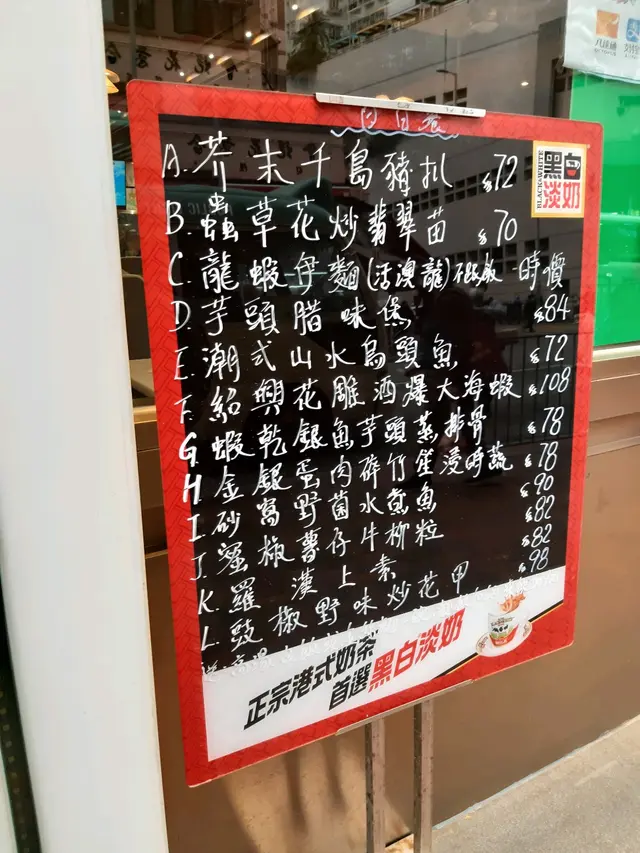 八達通
BLACK&WHITE
黑白
淡奶
A. 芥末千島豬扒 $72
B. 蟲草花炒翡翠苗 $70
C. 龍蝦伊麵(活澳龍) 時價
D. 芋頭腊味煲 $84
E. 潮式山水烏頭魚 $72
F. 紹興花雕酒爆大海蝦 $108
G. 蝦乾銀魚芋頭蒸排骨 $78
H. 金銀蛋肉碎竹笙浸時蔬 $78
I. 砂窩野菌水魚 $90
J. 蜜椒薯仔牛柳粒 $82
K. 羅漢上素 $82
L. 豉椒野味炒花甲 $98
正宗港式奶茶
首選黑白淡奶